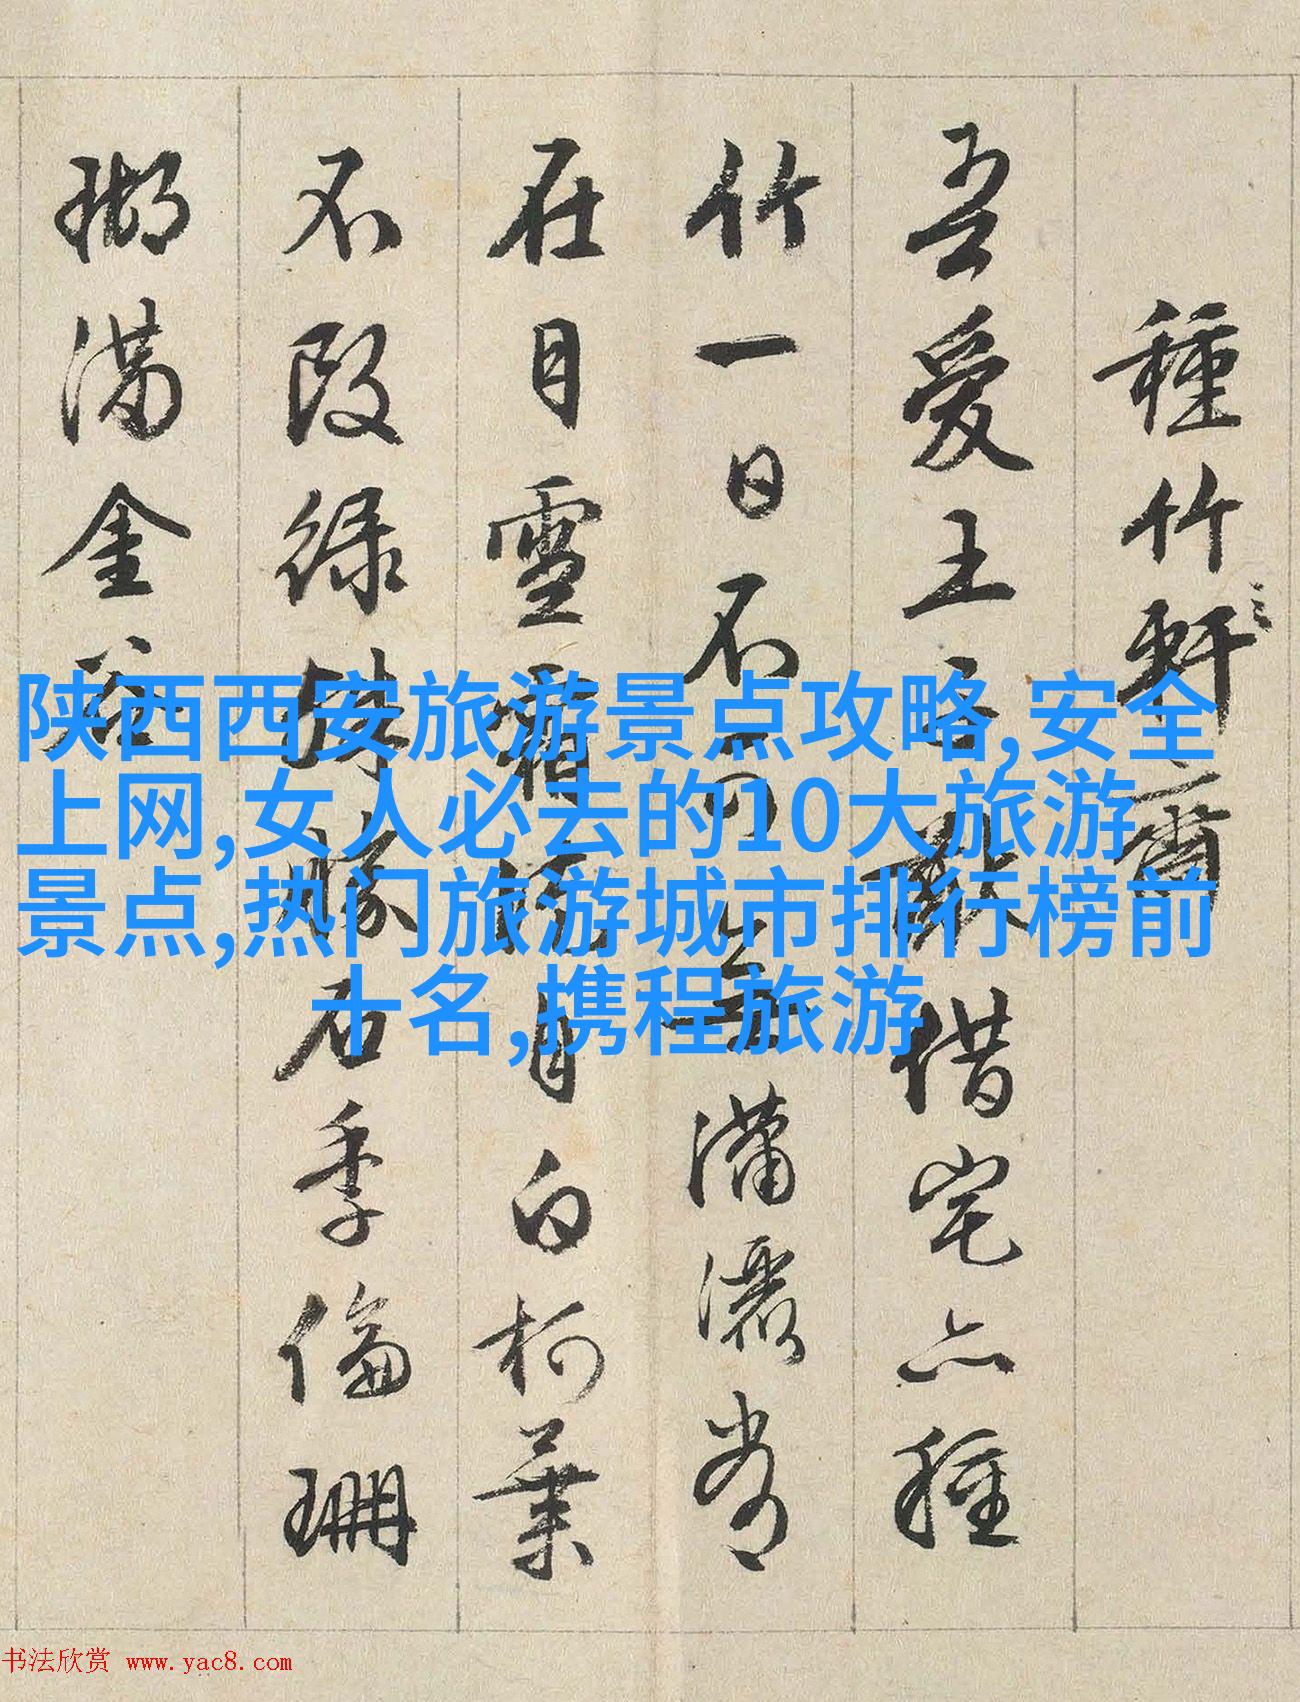 種竹軒
吾愛王子猷借宅亦種
竹一日不可無瀟灑常
在目雪霜徒自白柯葉
不改緑殊勝石季倫珊
瑚满金谷
陕西西安旅游景点攻略,安全
上网,女人必去的10大旅游
景点,热门旅游城市排行榜前
十名,携程旅游
书法欣赏 www.yac8.com